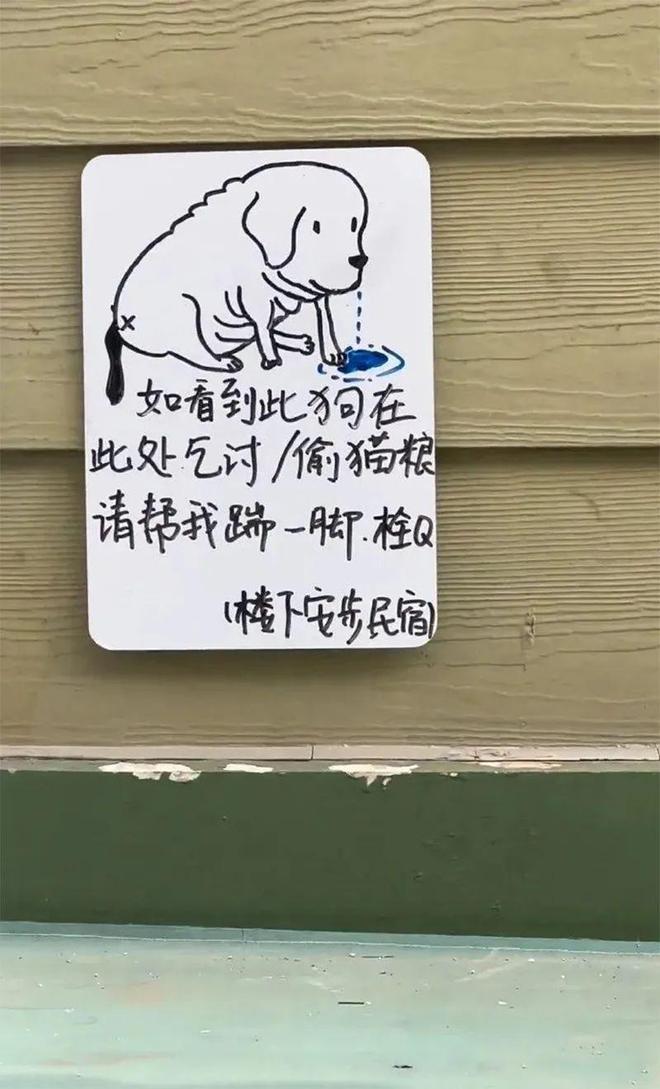 如看到此狗在
此处乞讨/偷猫粮
请帮我踹一脚.栓Q
(楼下安步民宿)